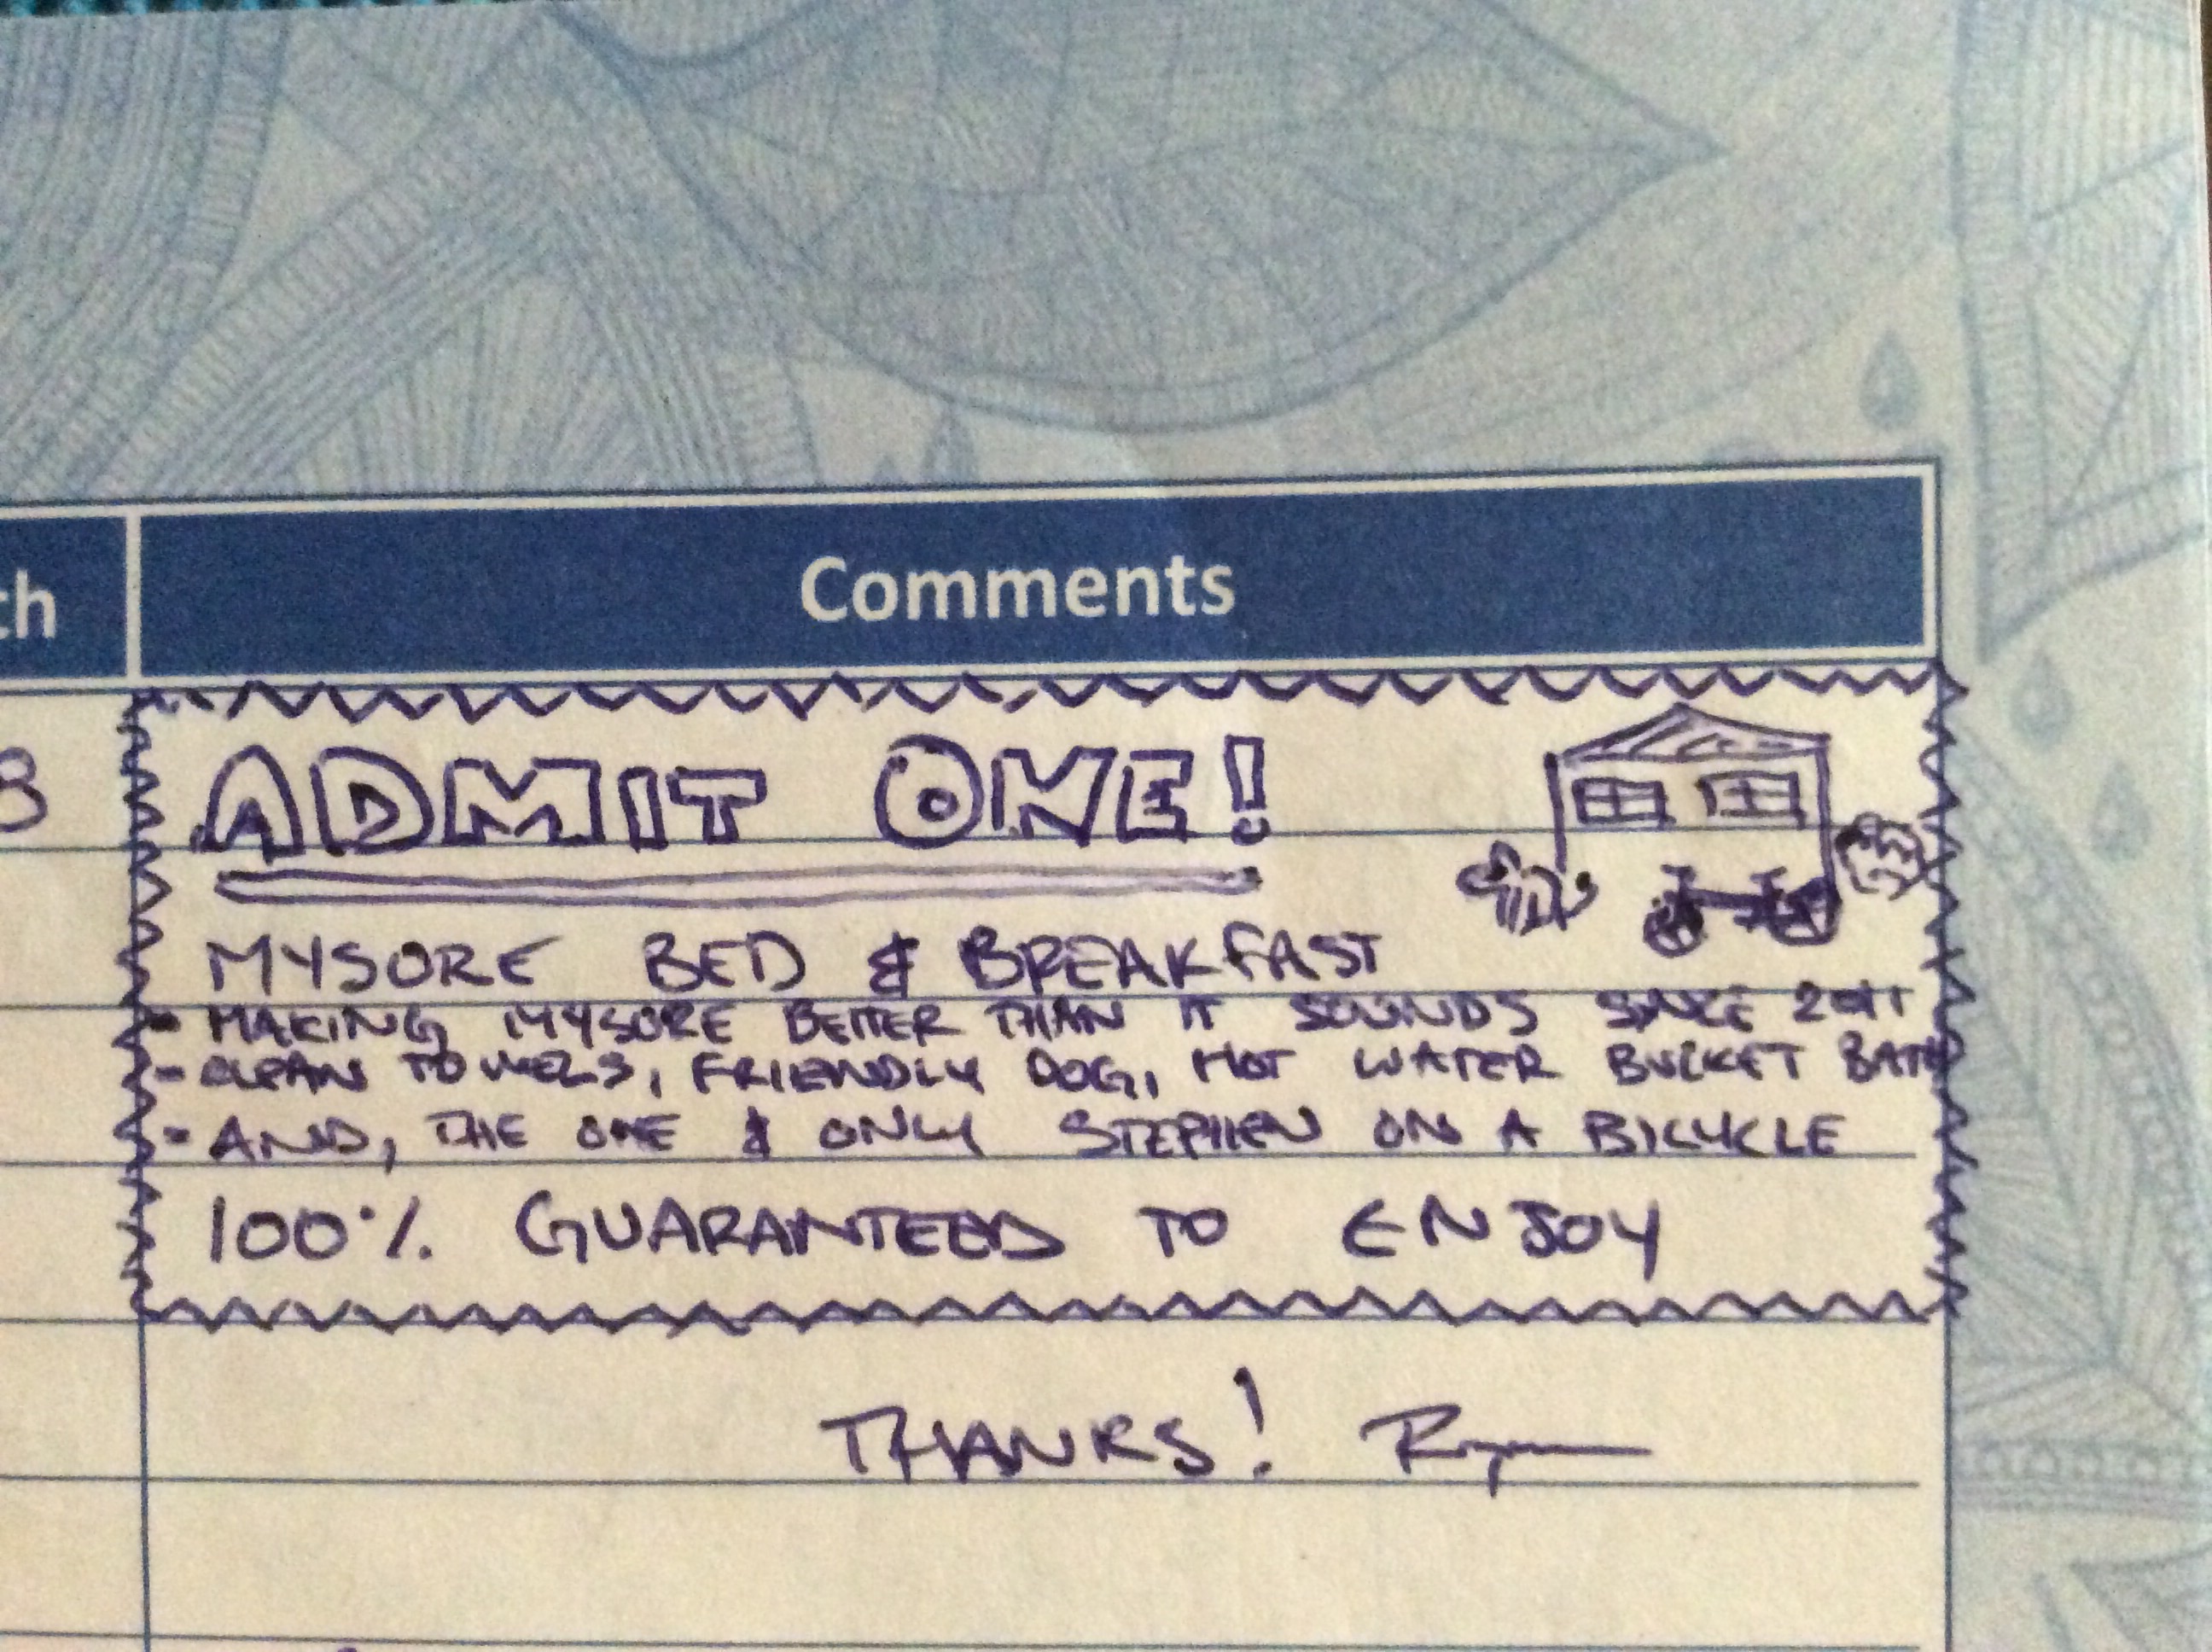 th
Comments
3
ADMIT ONE!
MYSORE BED & BREAKFAST
- MAKING MYSORE BETTER THAN IT SOUNDS SINCE 2011
- CLEAN TOWELS, FRIENDLY DOG, HOT WATER BUCKET BATH
- AND, THE ONE & ONLY STEPHEN ON A BICYCLE
100% GUARANTEED TO ENJOY
THANKS! Ryan